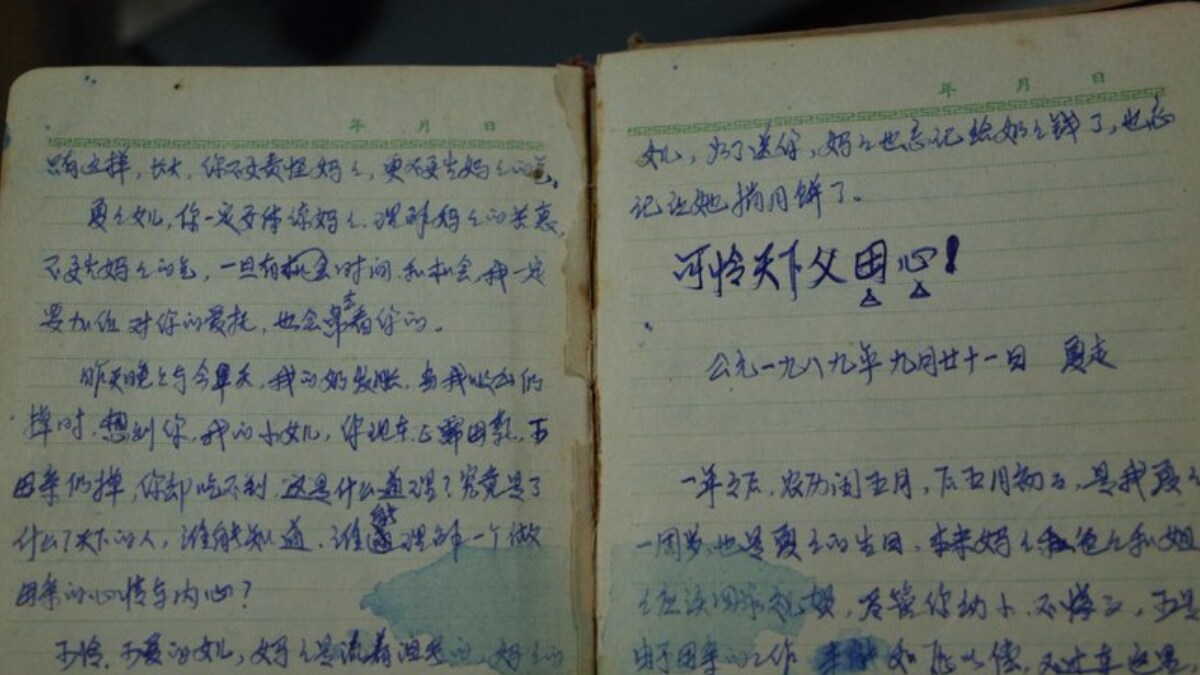 年 月 日
只有这样，长大，你不要责怪妈々，更不要生妈々的气。
夏々女儿，你一定要体谅妈々，理解妈々的苦衷，
不要生妈々的气，一旦有机会时间和机会，我一定
要加倍对你的爱抚，也会去看你的。
昨天晚上与今早天，我的奶发胀，当我吸出扔
掉时，想到你，我的小女儿，你现在正需母乳，而
母亲扔掉，你却吃不到，这是什么道理？究竟是了
什么？天下的人，谁能知道，谁能理解一个做
母亲的心情与内心？
可怜、可爱的女儿，妈々是流着泪 妈々的
年 月 日
女儿，为了送你，妈々也忘记给奶々钱了，也忘
记让她捎月饼了。
可怜天下父母心！
公元一九八九年九月廿十一日 夏走
一年之后，农历闰五月，后五月初 是我夏々
一周岁，也是夏々的生日，本来妈々和爸々和姐
々应该 尽管你幼小，不懂 可是
由于母亲的工作 未能如 以偿，又过